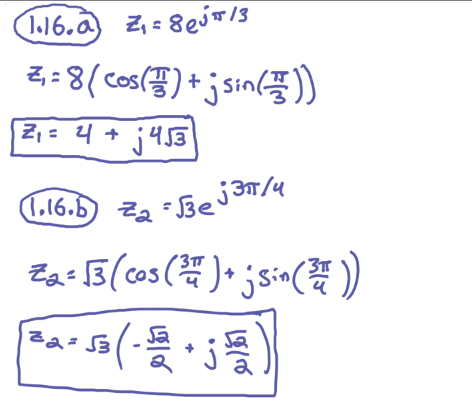 1.16.a z₁ = 8e^{jπ/3}
z₁ = 8(cos(π/3) + j sin(π/3))
z₁ = 4 + j4√3
1.16.b z₂ = √3e^{j3π/4}
z₂ = √3(cos(3π/4) + j sin(3π/4))
z₂ = √3(-√2/2 + j√2/2)